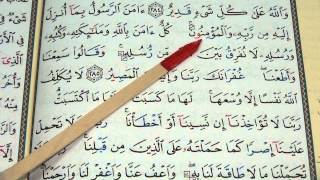 وَاللَّهُ عَلَىٰ كُلِّ شَىْءٍ قَدِيرٌ ٢٨٤ ءَامَنَ الرَّسُولُ بِمَآ أُنزِلَ
إِلَيْهِ مِن رَّبِّهِۦ وَالْمُؤْمِنُونَ ۚ كُلٌّ ءَامَنَ بِاللَّهِ وَمَلَٰٓئِكَتِهِۦ وَكُتُبِهِۦ
وَرُسُلِهِۦ لَا نُفَرِّقُ بَيْنَ مِّن رُّسُلِهِۦ ۚ وَقَالُوا سَمِعْنَا
وَأَطَعْنَا ۖ غُفْرَانَكَ رَبَّنَا الْمَصِيرُ ٢٨٥ لَا يُكَلِّفُ
اللَّهُ نَفْسًا إِلَّا وُسْعَهَا ۚ مَا كَسَبَتْ وَعَلَيْهَا مَا اكْتَسَبَتْ
رَبَّنَا لَا تُؤَاخِذْنَآ إِن نَّسِينَآ أَوْ أَخْطَأْنَا ۚ رَبَّنَا وَلَا تَحْمِلْ
عَلَيْنَآ إِصْرًا كَمَا حَمَلْتَهُۥ عَلَى الَّذِينَ مِن قَبْلِنَا ۚ رَبَّنَا وَلَا
تُحَمِّلْنَا مَا لَا طَاقَةَ لَنَا بِهِۦ ۖ وَاعْفُ عَنَّا وَاغْفِرْ لَنَا وَارْحَمْنَآ